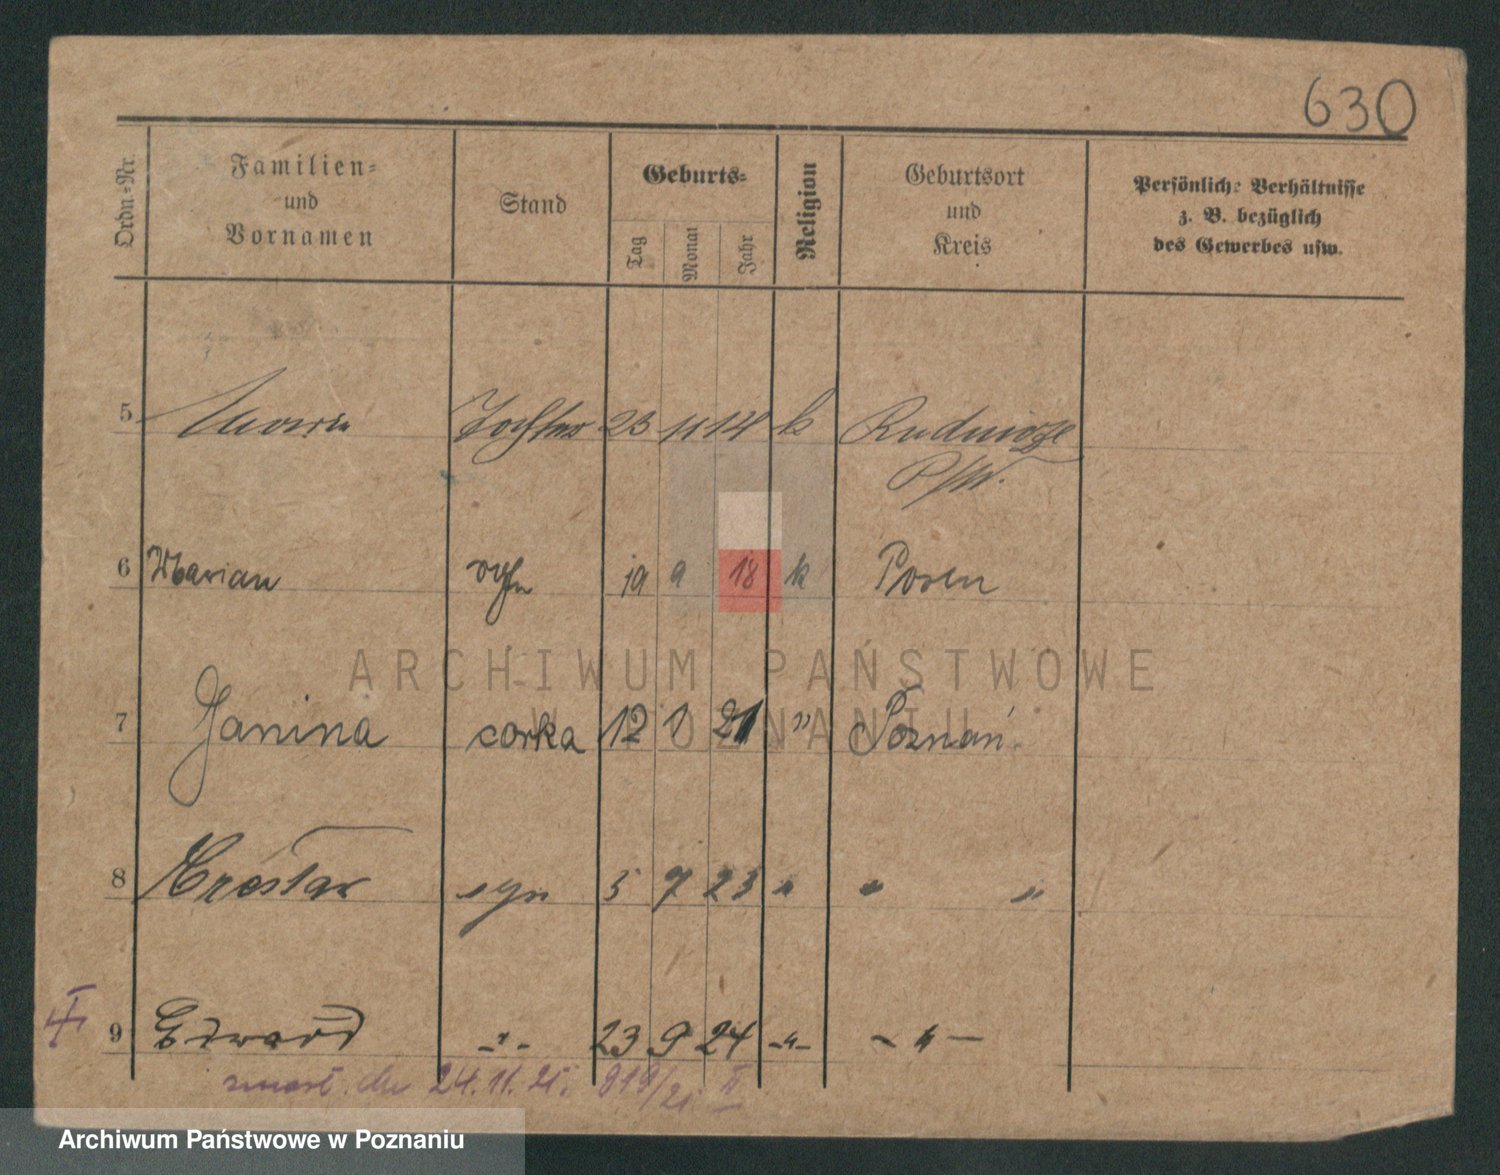 630
Ordn.-Nr.
Familien-
und
Vornamen
Stand
Geburts-
Tag
Monat
Jahr
Religion
Geburtsort
und
Kreis
Persönliche Verhältnisse
z. B. bezüglich
des Gewerbes usw.
5 Tochter 23 11 14 k
P/W.
6 Marian syn 19 9 18 k Posen
7 Janina corka 12 1 21 " Poznań
8 syn 5 7 23 " " "
9 Edward -"- 23 9 24 -"- -"-
zmarł dn 24.11.25.
ARCHIWUM PAŃSTWOWE
W POZNANIU
Archiwum Państwowe w Poznaniu